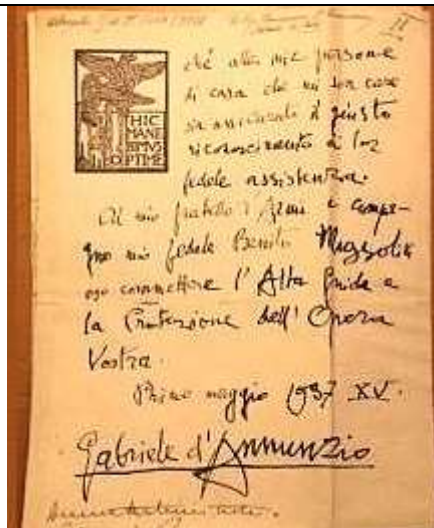 II
HIC
MANE
BIMVS
OPTIME
che alle mie persone
di casa che mi son care
sia assicurato il giusto
riconoscimento a lor
fedele assistenza.
Al mio fratello d'Armi e compa-
gno mio fedele Benito Mussolini
oso commettere l'Alta Guida e
la Protezione dell'Opera
Vostra.
Primo maggio 1937 XV.
Gabriele d'Annunzio